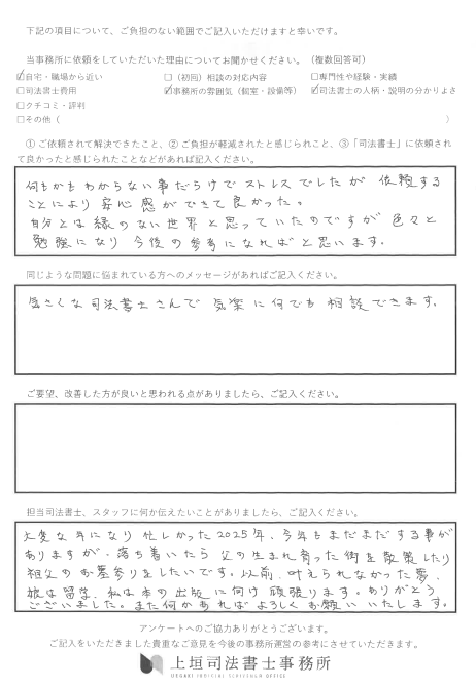 下記の項目について、ご負担のない範囲でご記入いただけますと幸いです。
当事務所に依頼をしていただいた理由についてお聞かせください。（複数回答可）
☑自宅・職場から近い　□（初回）相談の対応内容　□専門性や経験・実績
□司法書士費用　☑事務所の雰囲気（個室・設備等）　☑司法書士の人柄・説明の分かりよさ
□クチコミ・評判
□その他（　）
①ご依頼されて解決できたこと、②ご負担が軽減されたと感じられこと、③「司法書士」に依頼され
て良かったと感じられたことなどがあれば記入ください。
何もかもわからない事だらけでストレスでしたが 依頼する
ことにより 安心感ができて良かった。
自分とは縁のない世界と思っていたのですが 色々と
勉強になり 今後の参考になればと思います.
同じような問題に悩まれている方へのメッセージがあればご記入ください。
気さくな司法書士さんで 気楽に何でも相談できます。
ご要望、改善した方が良いと思われる点がありましたら、ご記入ください。
担当司法書士、スタッフに何か伝えたいことがありましたら、ご記入ください。
大変な年になり 忙しかった2025年、今年もまだまだする事が
ありますが、落ち着いたら 父の生まれ育った街を散策したり
祖父のお墓参りをしたいです。以前、叶えられなかった夢、
娘は留学、私は本の出版に向け頑張ります。ありがとう
ございました。また何かあればよろしくお願いいたします.
アンケートへのご協力ありがとうございます。
ご記入をいただきました貴重なご意見を今後の事務所運営の参考にさせていただきます。
上垣司法書士事務所
UEGAKI JUDICIAL SCRIVENER OFFICE